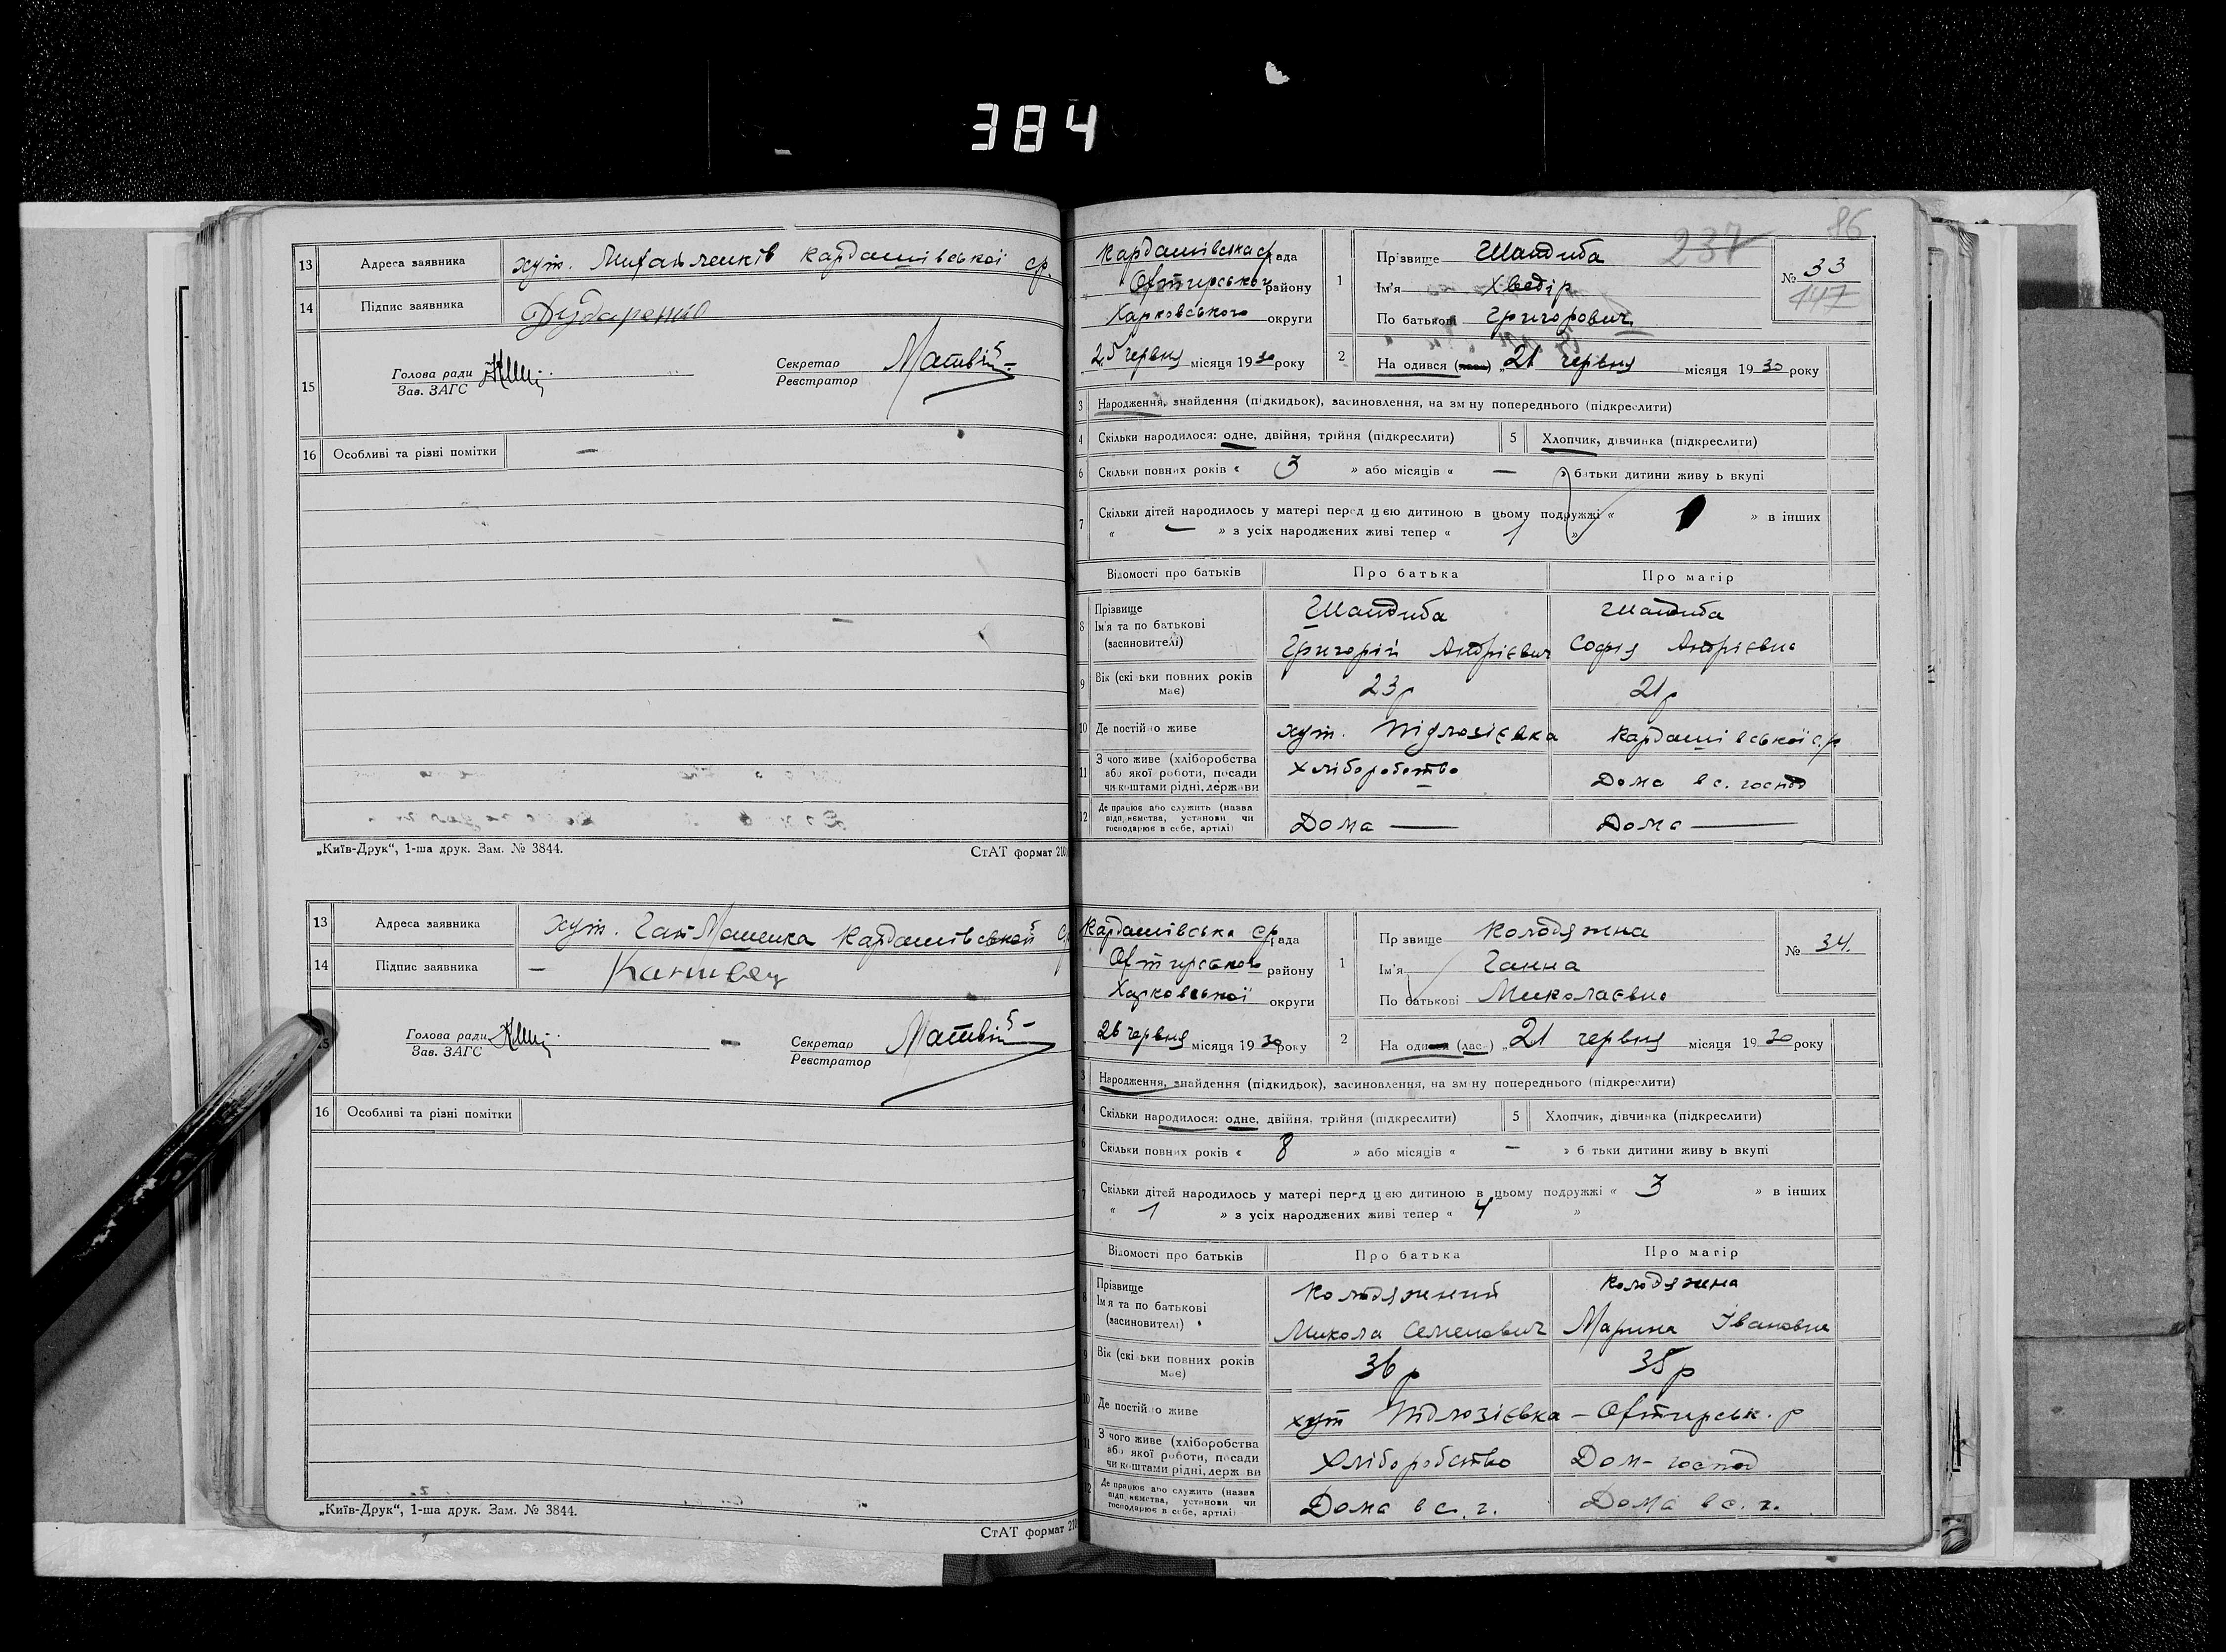 384
13 Адреса заявника хут. Михайленків Кардашівської ср.
14 Підпис заявника Дударенко
15 Голова ради
Зав. ЗАГС
Секретар
Реєстратор
16 Особливі та різні помітки —
„Київ-Друк“, 1-ша друк. Зам. № 3844.
СтАТ формат 210
13 Адреса заявника хут. Кардашівської
14 Підпис заявника —
Голова ради
Зав. ЗАГС
Секретар
Реєстратор
16 Особливі та різні помітки
„Київ-Друк“, 1-ша друк. Зам. № 3844.
СтАТ формат 210
237 86
Кардашівська ср рада
Охтирського району
Харковського округи
25 червня місяця 1930 року
1 Прізвище Шандиба
Ім'я Хведір
По батькові Григорович
№ 33
147
2 На одився (лась) „21 червня місяця 1930 року
3 Народження, знайдення (підкидьок), засиновлення, на зм ну попереднього (підкреслити)
4 Скільки народилося: одне, двійня, трійня (підкреслити) 5 Хлопчик, дівчинка (підкреслити)
6 Скільки повних років « 3 » або місяців « — » батьки дитини живу ь вкупі
7 Скільки дітей народилось у матері перед цією дитиною в цьому подружжі « 1 » в інших
« — » з усіх народжених живі тепер « 1 »
Відомості про батьків Про батька Про матір
8 Прізвище Шандиба Шандиба
Ім'я та по батькові
(засиновителі) Григорій Андрієвич Софія Андрієвна
9 Вік (скі ьки повних років має) 23 р 21 р
10 Де постійно живе хут. Кардашівської с.р
11 З чого живе (хліборобства
або якої роботи, посади
чи коштами рідні, держави Хліборобство Дома в с. господ
12 Де працює або служить (назва
підп иємства, установи чи
господарює в себе, артілі) Дома — Дома —
Кардашівська ср рада
Охтирського району
Харковської округи
26 червня місяця 1930 року
1 Пр звище Колодяжна
Ім'я Ганна
По батькові Миколаєвна
№ 34.
2 На одився (лась) „21 червня місяця 1930 року
3 Народження, знайдення (підкидьок), засиновлення, на зм ну попереднього (підкреслити)
4 Скільки народилося: одне, двійня, трійня (підкреслити) 5 Хлопчик, дівчинка (підкреслити)
6 Скільки повних років « 8 » або місяців « — » б тьки дитини живу ь вкупі
7 Скільки дітей народилось у матері перед цією дитиною в цьому подружжі « 3 » в інших
« 1 » з усіх народжених живі тепер « 4 »
Відомості про батьків Про батька Про матір
8 Прізвище Колодяжний Колодяжна
Ім'я та по батькові
(засиновителі) Микола Семенович Марина Івановна
9 Вік (скі ьки повних років має) 36 р 35 р
10 Де постійно живе хут – Охтирськ. р
11 З чого живе (хліборобства
або якої роботи, посади
чи коштами рідні, держ ви Хліборобство Дом- господ
12 Де працює або служить (назва
підп иємства, установи чи
господарює в себе, артілі) Дома в с. г. Дома в с. г.